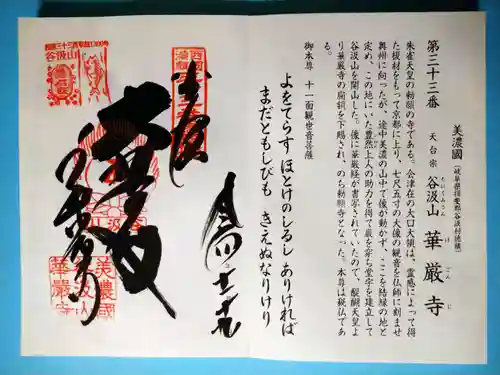 第三十三番
美濃國(岐阜県揖斐郡谷汲村徳積)
天台宗 谷汲山 華厳寺
朱雀天皇の勅願の寺である。会津在の大口大領は、霊感によって得
た榎材をもって京都に上り、七尺五寸の大像の観音を仏師に刻ませ
奥州に向ったが、途中美濃の山中で像が動かず、ここを結縁の地と
定め、この地にいた豊然上人の助力を得て巌を穿ち堂宇を建立して
谷汲山を開山した。像に華厳経が書写されていたので、醍醐天皇よ
り華厳寺の扁額を下賜され、のち勅願寺となった。本尊は秘仏であ
る。
御本尊 十一面観世音菩薩
よをてらす ほとけのしるし ありければ
まだともしびも きえぬなりけり
谷汲山
美濃國
谷汲山
華嚴寺